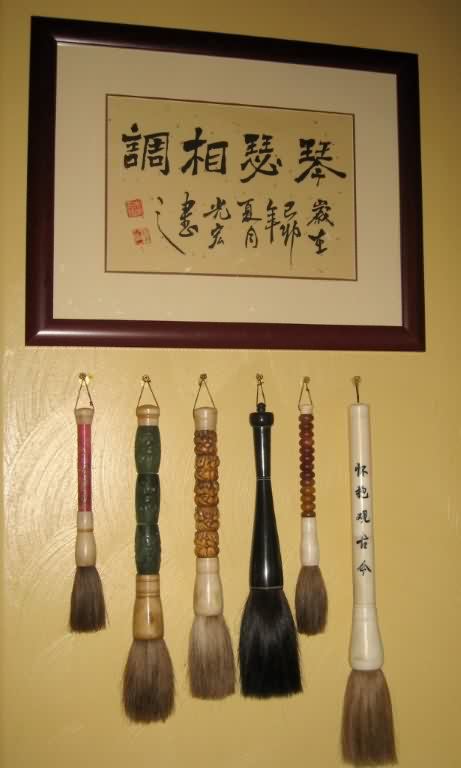 琴瑟相調
歲在
己卯
年
夏月
光宏
書
之
怀抱观古今